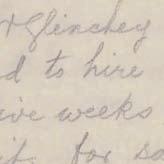 Glinchey
d to hire
ive weeks
it for so